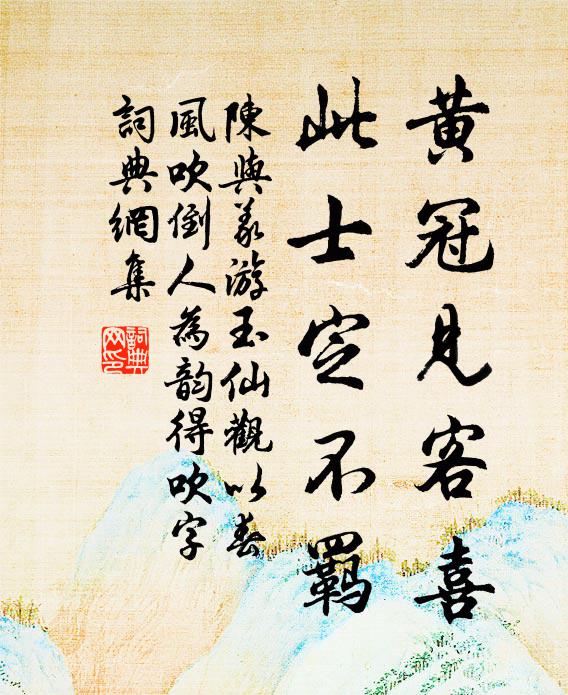 黃冠見客喜
此士定不羈
陳與義游玉仙觀以春
風吹倒人為韵得吹字
詞典網集
詞典
网印